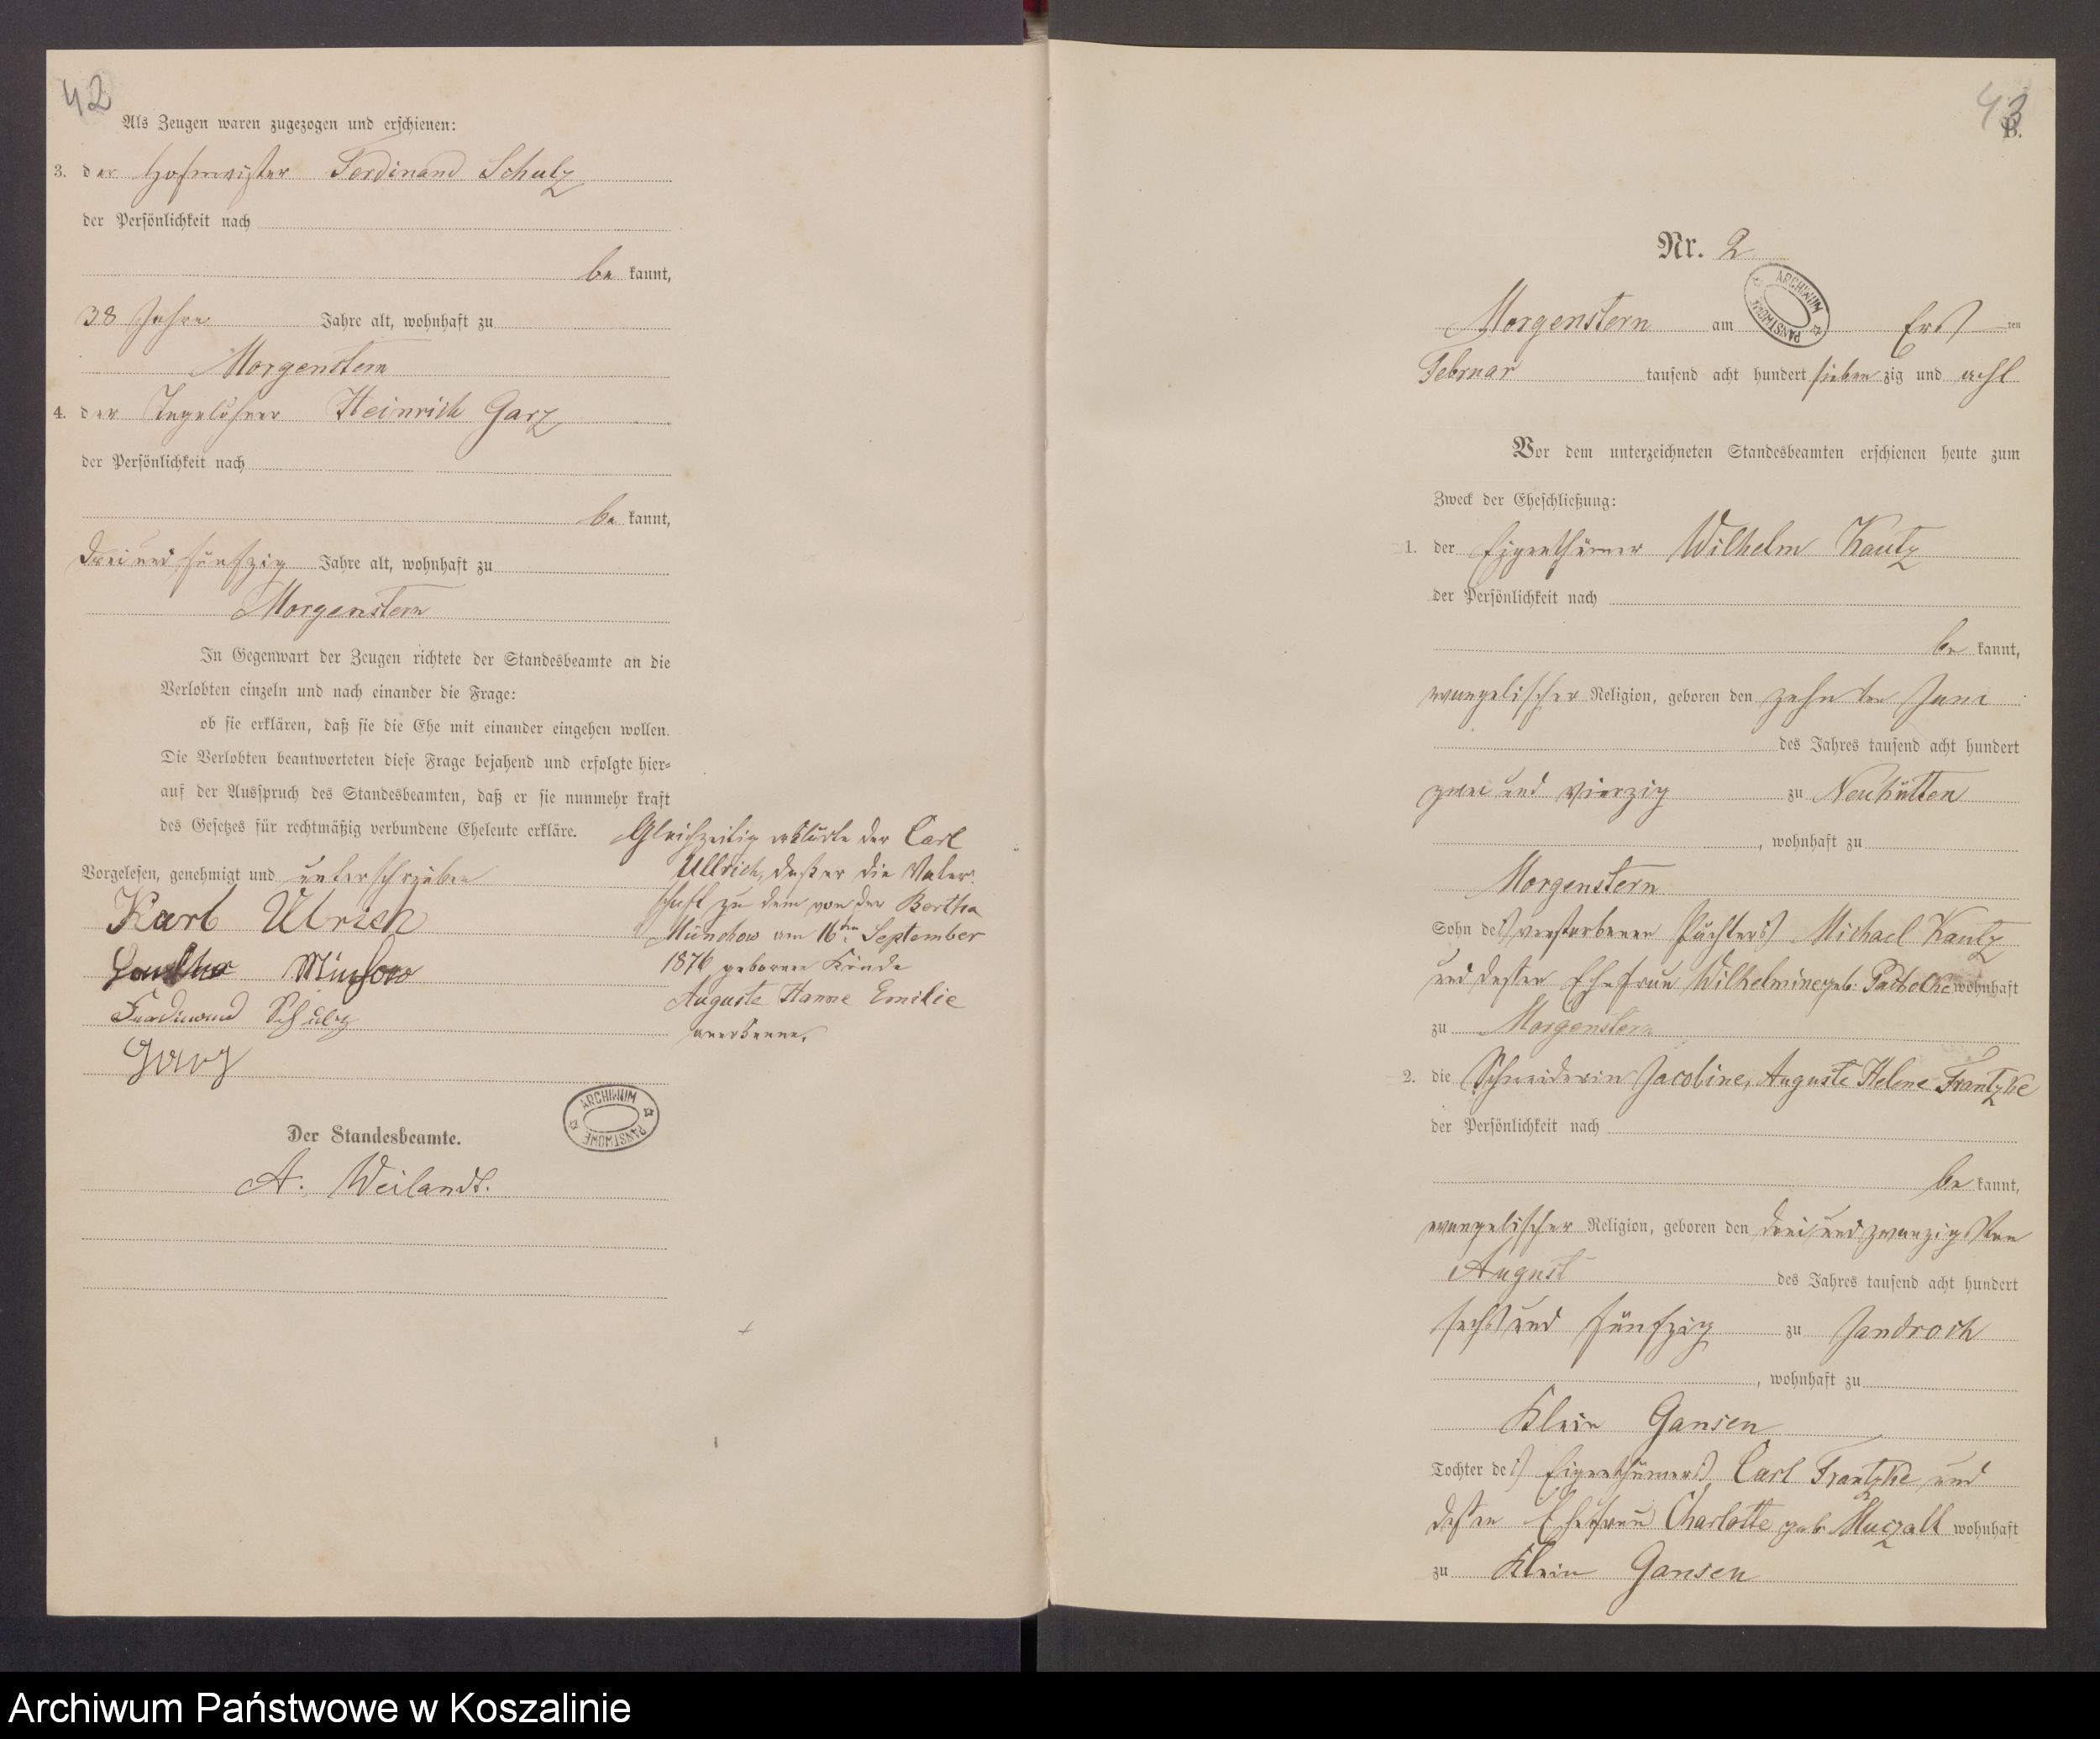 42
Als Zeugen waren zugezogen und erschienen:
3. der Hofmeister Ferdinand Schulz
der Persönlichkeit nach
be kannt,
38 Jahre Jahre alt, wohnhaft zu
Morgenstern
4. der Tagelöhner Heinrich Garz
der Persönlichkeit nach
be kannt,
drei und fünfzig Jahre alt, wohnhaft zu
Morgenstern
In Gegenwart der Zeugen richtete der Standesbeamte an die
Verlobten einzeln und nach einander die Frage:
ob sie erklären, daß sie die Ehe mit einander eingehen wollen.
Die Verlobten beantworteten diese Frage bejahend und erfolgte hier-
auf der Ausspruch des Standesbeamten, daß er sie nunmehr kraft
des Gesetzes für rechtmäßig verbundene Eheleute erkläre.
Vorgelesen, genehmigt und unterschrieben
Karl Ulrich
Münchow
Ferdinand Schulz
Garz
Gleichzeitig erklärte der Carl
Ullrich, daß er die Vater-
schaft zu dem von der Bertha
Münchow am 16ten September
1876 geborenen Kinde
Auguste Hanne Emilie
anerkenne.
ARCHIWUM PAŃSTWOWE
Der Standesbeamte.
A. Weilandt.
43
B.
Nr. 2
ARCHIWUM PAŃSTWOWE
Morgenstern am Ersten
Februar tausend acht hundert sieben zig und acht
Vor dem unterzeichneten Standesbeamten erschienen heute zum
Zweck der Eheschließung:
1. der Eigenthümer Wilhelm Kautz
der Persönlichkeit nach
be kannt,
evangelischer Religion, geboren den zehnten Juni
des Jahres tausend acht hundert
zwei und vierzig zu Neuhütten
, wohnhaft zu
Morgenstern
Sohn des verstorbenen Pächters Michael Kautz
und dessen Ehefrau Wilhelmine geb. Pacholke wohnhaft
zu Morgenstern
2. die Schneiderin Jacobine, Auguste Helene Frantzke
der Persönlichkeit nach
be kannt,
evangelischer Religion, geboren den drei und zwanzigsten
August des Jahres tausend acht hundert
sechs und fünfzig zu Jandroch
, wohnhaft zu
Klein Gansen
Tochter des Eigenthümers Carl Frantzke und
dessen Ehefrau Charlotte geb. wohnhaft
zu Klein Gansen
Archiwum Państwowe w Koszalinie